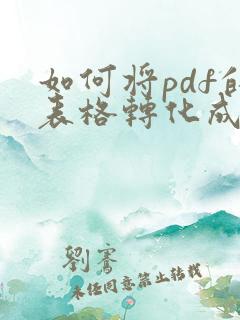 如何将pdf的
表格轉化成
劉
未任同意禁止转载